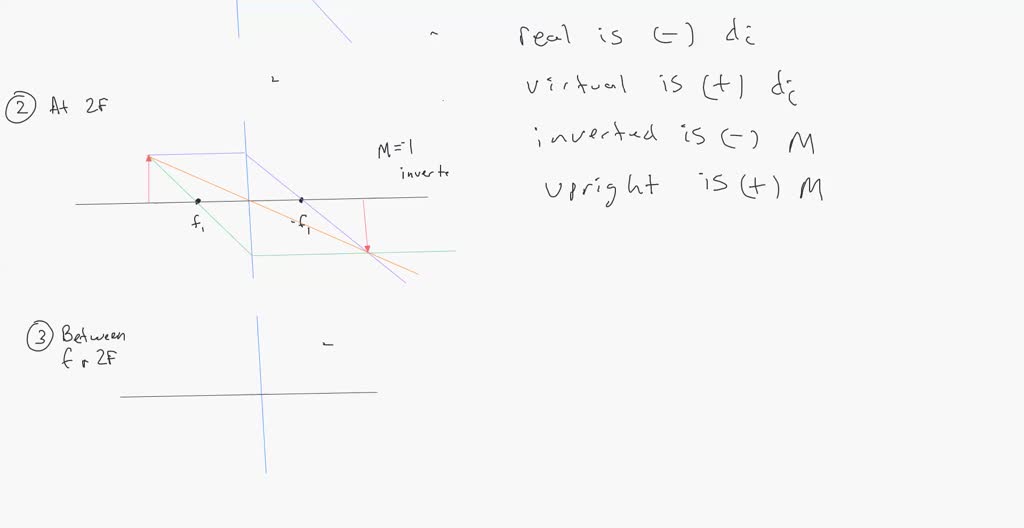 real is (-) di
virtual is (+) di
② At 2F
inverted is (-) M
M=-1
inverte
upright is (+) M
f₁
-f₁
③ Between
f & 2F